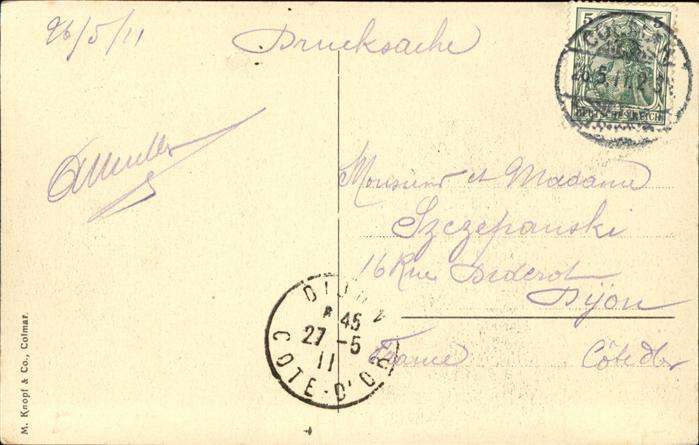 26/5/11
Drucksache
5
COLMAR
26.5.11
DEUTSCHES REICH
Monsieur et Madame
Szczepanski
16 Rue Diderot
Dijon
France Côte d'Or
DIJON
45
27-5
11
COTE-D'OR
M. Knopf & Co., Colmar.